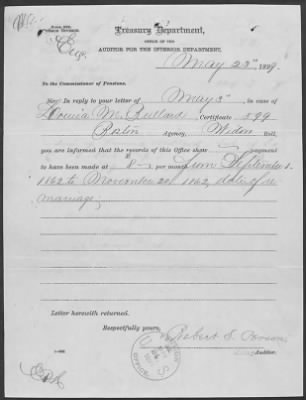 Treasury Department,
OFFICE OF THE
AUDITOR FOR THE INTERIOR DEPARTMENT,
May 23", 1899.
To the Commissioner of Pensions.
SIR: In reply to your letter of May 3" in case of
Louisa M. Bullard Certificate 599
Agency, Widow Roll,
you are informed that the records of this Office show payment
to have been made at 8 per month from September 1.
1862 to November 20, 1862, date of re
marriage;
Letter herewith returned.
Respectfully yours,
Robert S. Person
Auditor.